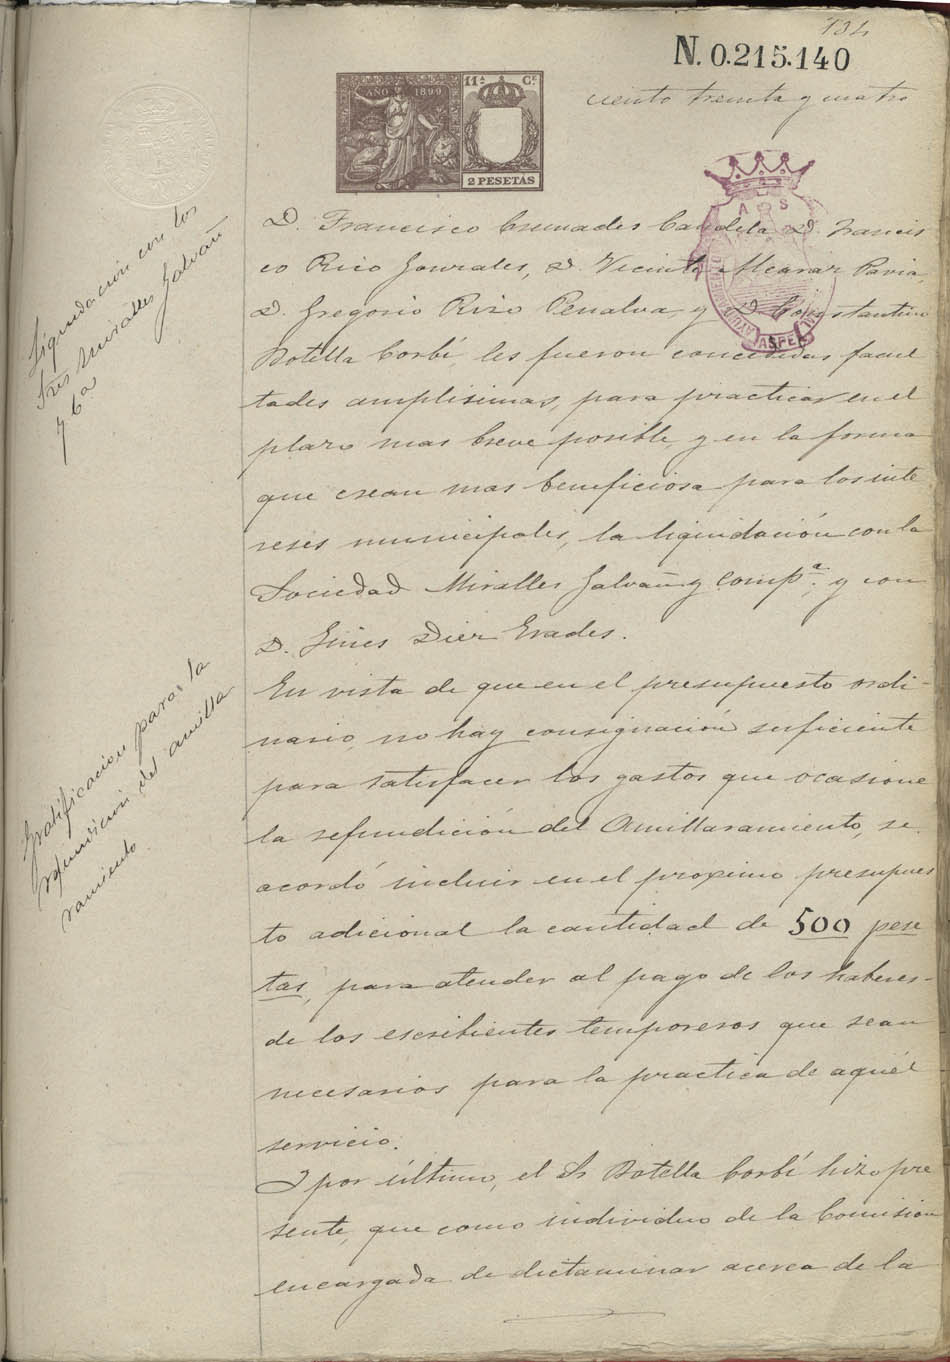 134
N. 0.215.140
ciento treinta y cuatro
AÑO 1899
11ª Cª
2 PESETAS
ASPE
Liquidacion con los
Sres Miralles Galvañ
y Cª
D. Francisco Cremades Candela D. Francis
co Rico Gonzales, D. Vicente Alcaraz Pavia,
D. Gregorio Rizo Penalva y D. Constantino
Botella Corbí, les fueron concedidas facul
tades amplisimas, para practicar en el
plazo mas breve posible, y en la forma
que crean mas beneficiosa para los inte
reses municipales, la liquidación con la
Sociedad Miralles Galvañ y Compª, y con
D. Gines Dier Erades.
Gratificacion para la
refundicion del amilla
ramiento
En vista de que en el presupuesto ordi-
nario, no hay consignación suficiente
para satisfacer los gastos que ocasione
la refundición del Amillaramiento, se
acordó incluir en el proximo presupues
to adicional la cantidad de 500 pese
tas, para atender al pago de los haberes-
de los escribientes temporeros que sean
necesarios para la practica de aquél
servicio.
Y por último, el Sr Botella Corbí hizo pre
sente, que como individuo de la Comisión
encargada de dictaminar acerca de la